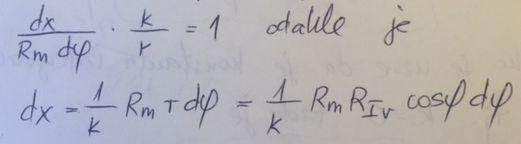 dx / (Rm dφ) · k/r = 1 odakle je
dx = 1/k Rm r dφ = 1/k Rm R_Iv cosφ dφ